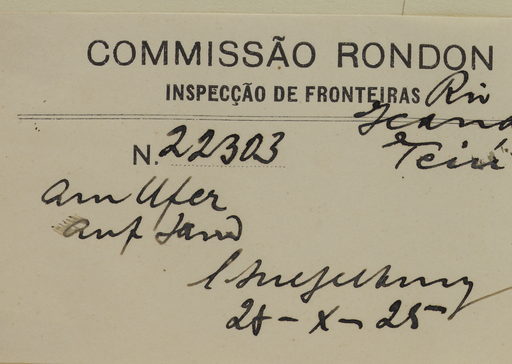 COMMISSÃO RONDON
INSPECÇÃO DE FRONTEIRAS Rio
N. 22303
am Ufer
auf Sand
28-X-25